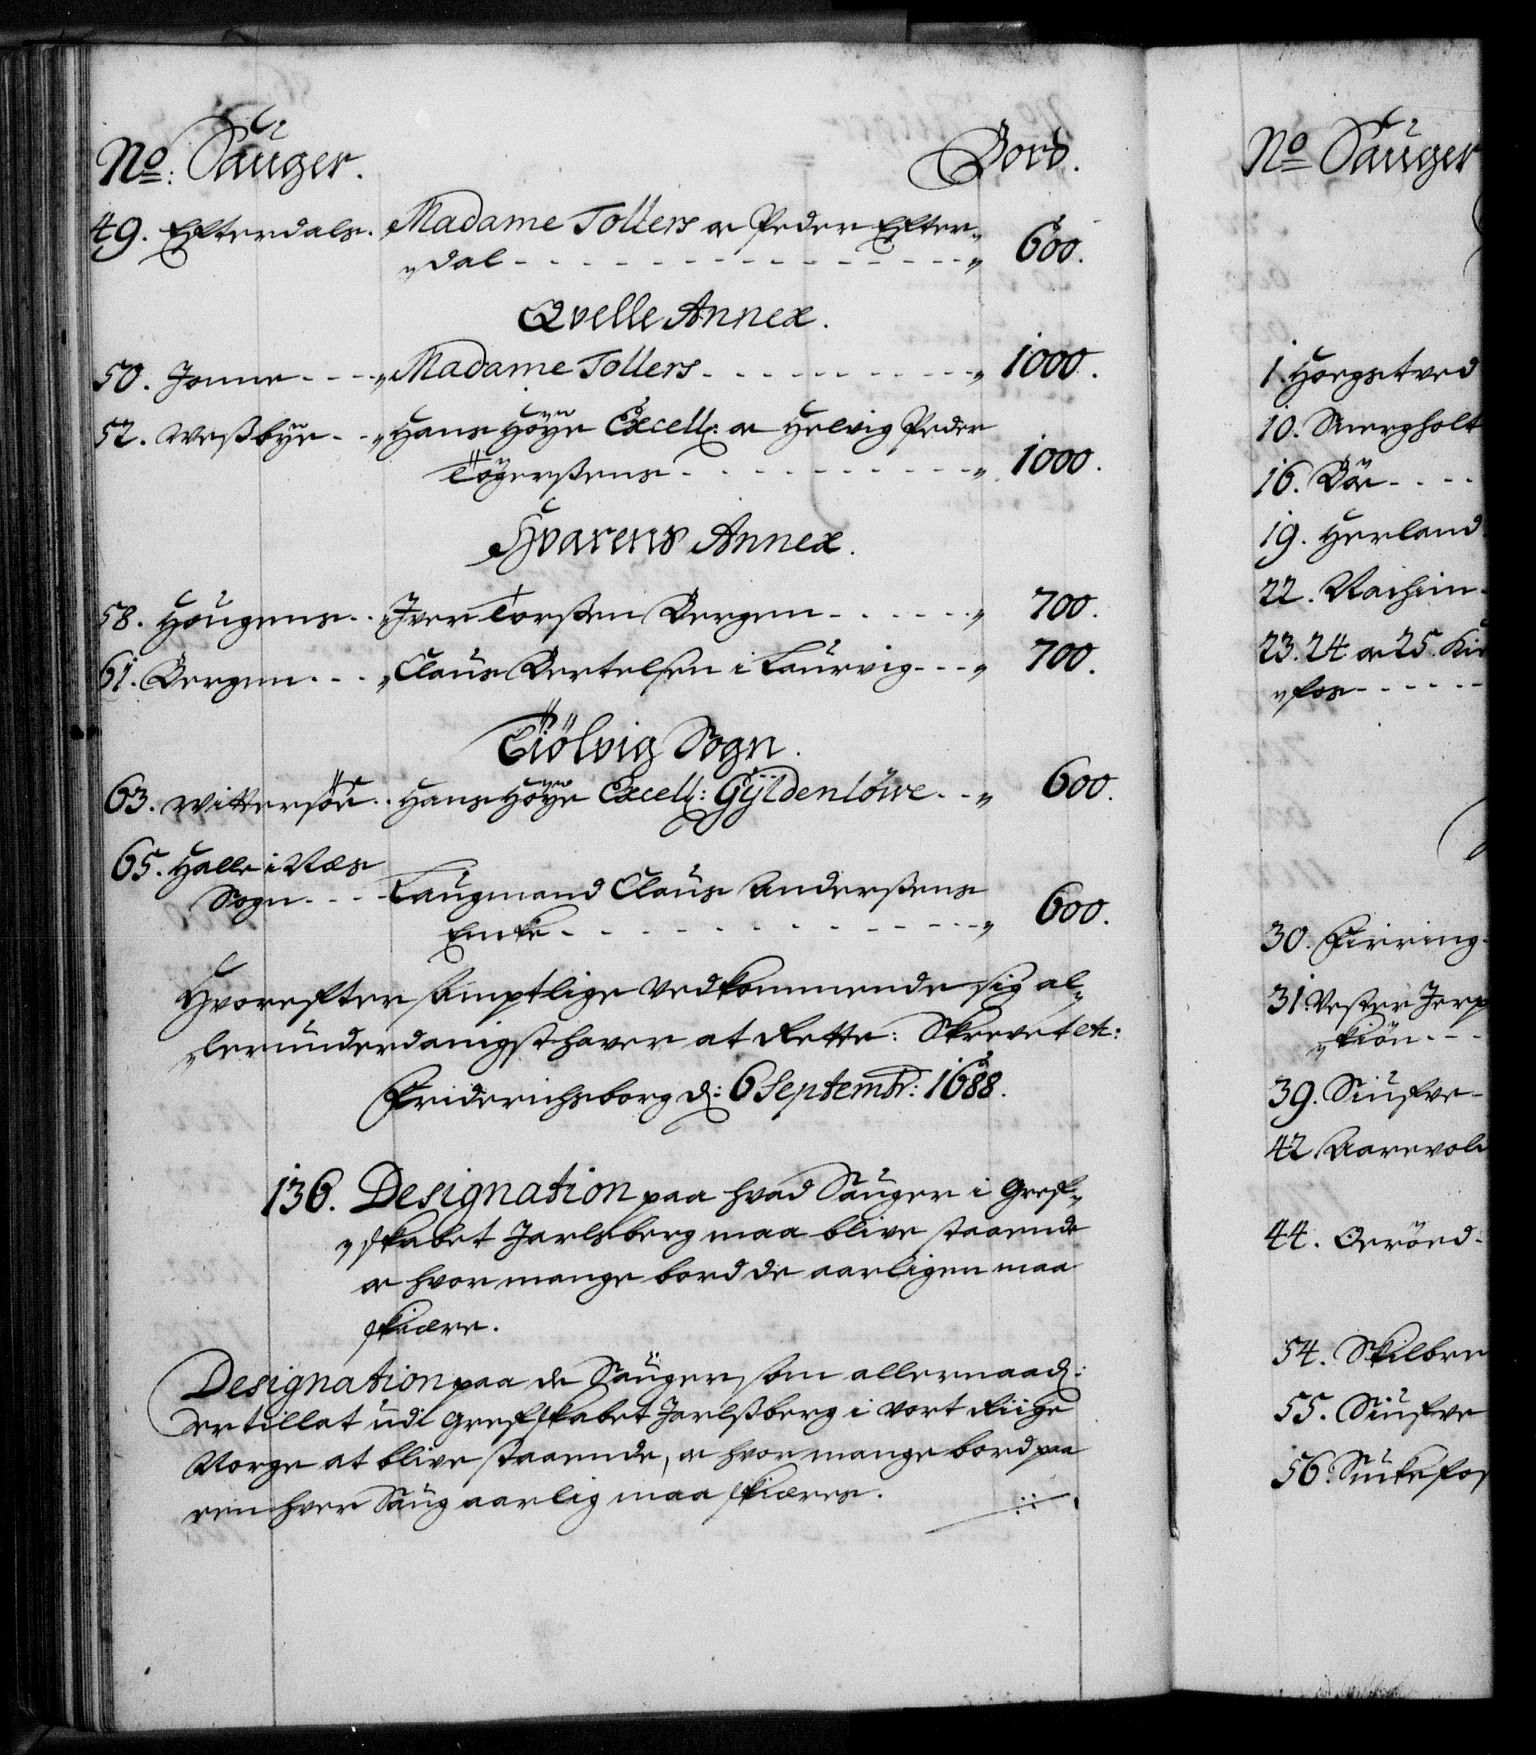 No: Sauger. Bord.
49. Efterdals. Madame Tollers og Peder Efter-
„dal - - - „ 600.
Qvelle Annex.
50. Jonne - - - „Madame Tollers - - - „ 1000.
52. Weßbye - - „Hans Höye Excell: og Helvig Peder
Tögerßens - - - „ 1000.
Hvarens Annex.
58. Hougens - - „Iver Torßen Bergen - - - „ 700.
61. Bergen - - - „Claus Bertelsen i Laurvig - - - „ 700.
Tiölvig Sogn.
63. Wittersöe - - Hans Höye Excell: Gyldenlöwe - - „ 600.
65. Halle i Næs
Sogn - - - Laugmand Claus Anderßens
Encke - - - „ 600.
Hvorefter samptlige vedkommende sig al„
„lerunderdanigst haver at Rette: Skrevet etc:
Friderichsborg d: 6 Septembr: 1688.
136. Designation paa hvad Sauger i Gref„
„skabet Jarlsberg maa blive staaende
og hvor mange bord de aarligen maa
skiære.
Designation paa de Sauger som allernaad:
er tillat udi Grefskabet Jarlßberg i vort Riige
Norge at blive staaende, og hvor mange bord paa
een hver Saug aarlig maa skiæres.
No Sauger
1. Hoegstved
10. Mergholt
16. Böe - - -
19. Herland
22. Nachim
23. 24 og 25. Ki
„fos - - -
30. Firring
31. Vester Jerp
„kiön - - -
39. Siufve
42. Aarevold
44. Oeröed
54. Skilbre
55. Siufve
56. Suckefos